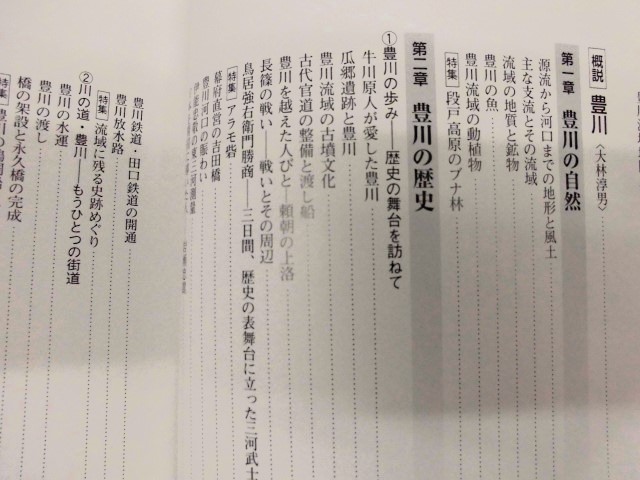 概説 豊川〈大林淳男〉
第一章 豊川の自然
源流から河口までの地形と風土
主な支流とその流域
流域の地質と鉱物
豊川の魚
豊川流域の動植物
特集 段戸高原のブナ林
第二章 豊川の歴史
①豊川の歩み――歴史の舞台を訪ねて
牛川原人が愛した豊川
瓜郷遺跡と豊川
豊川流域の古墳文化
古代官道の整備と渡し船
豊川を越えた人びと――頼朝の上洛
長篠の戦い――戦いとその周辺
鳥居強右衛門勝商――三日間、歴史の表舞台に立った三河武士
特集 アラモ砦
幕府直営の吉田橋
豊川河口の賑わい
伊能忠敬の東三河測量
豊川鉄道・田口鉄道の開通
豊川放水路
特集 流域に残る史跡めぐり
②川の道・豊川――もうひとつの街道
豊川の水運
豊川の渡し
橋の架設と永久橋の完成
特集 豊川の